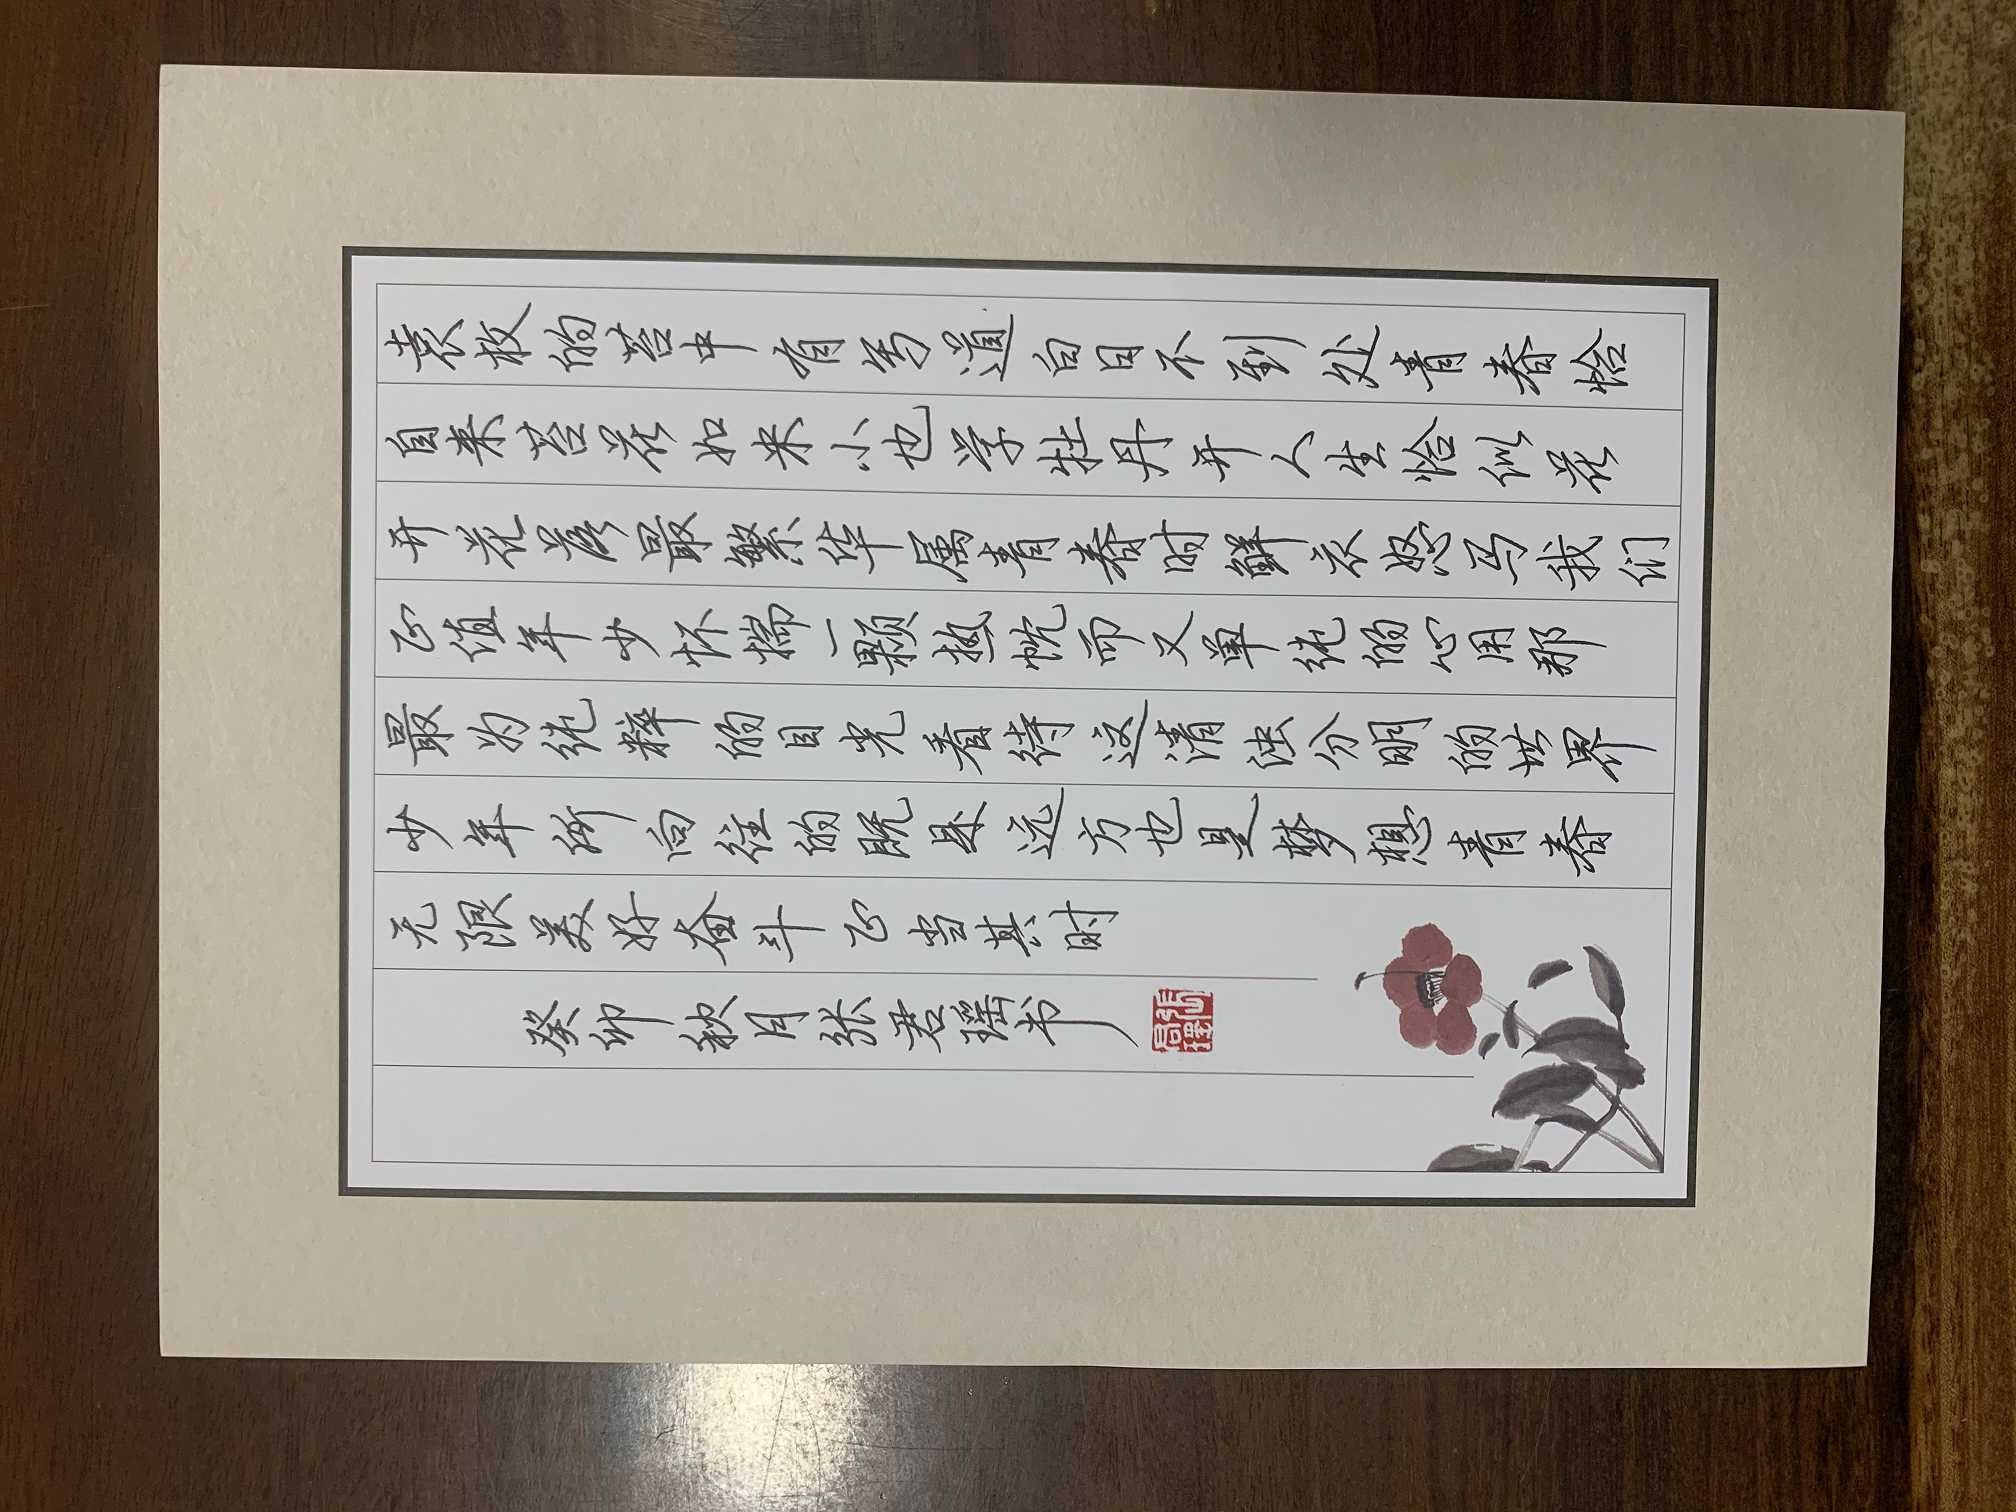 袁枚的苔中有写道白日不到处青春恰
自来苔花如米小也学牡丹开人生恰似花
开花落最繁华属青春时鲜衣怒马我们
正值年少怀揣一颗热忱而又单纯的心用那
最为纯粹的目光看待这清浊分明的世界
少年所向往的既是远方也是梦想青春
无限美好奋斗正当其时
癸卯秋月张君瑶书